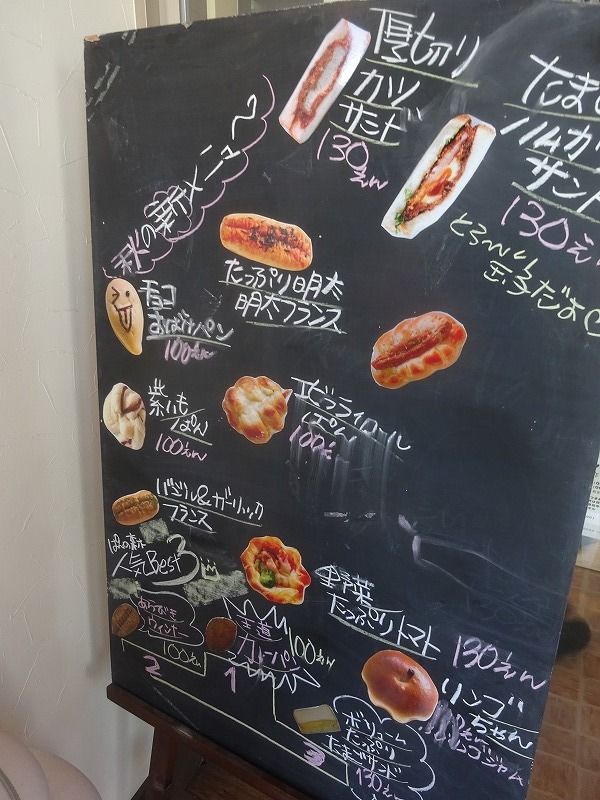 厚切り
カツ
サンド
130えん
たま
ハムカツ
サンド
130えん
とろ〜り
玉子だよ
秋の新メニュ〜
たっぷり明太
明太フランス
チョコ
おばけパン
100えん
紫いも
ぱん
100えん
エビフライロール
ぱん
100え
バジル&ガーリック
フランス
人気Best3
野菜
たっぷりトマト
130えん
あらびき
ウィンナー
100えん
2
王道
カレーパン
100えん
1
ボリューム
たっぷり
たまごサンド
130えん
3
リンゴ
ちゃん
リンゴジャム